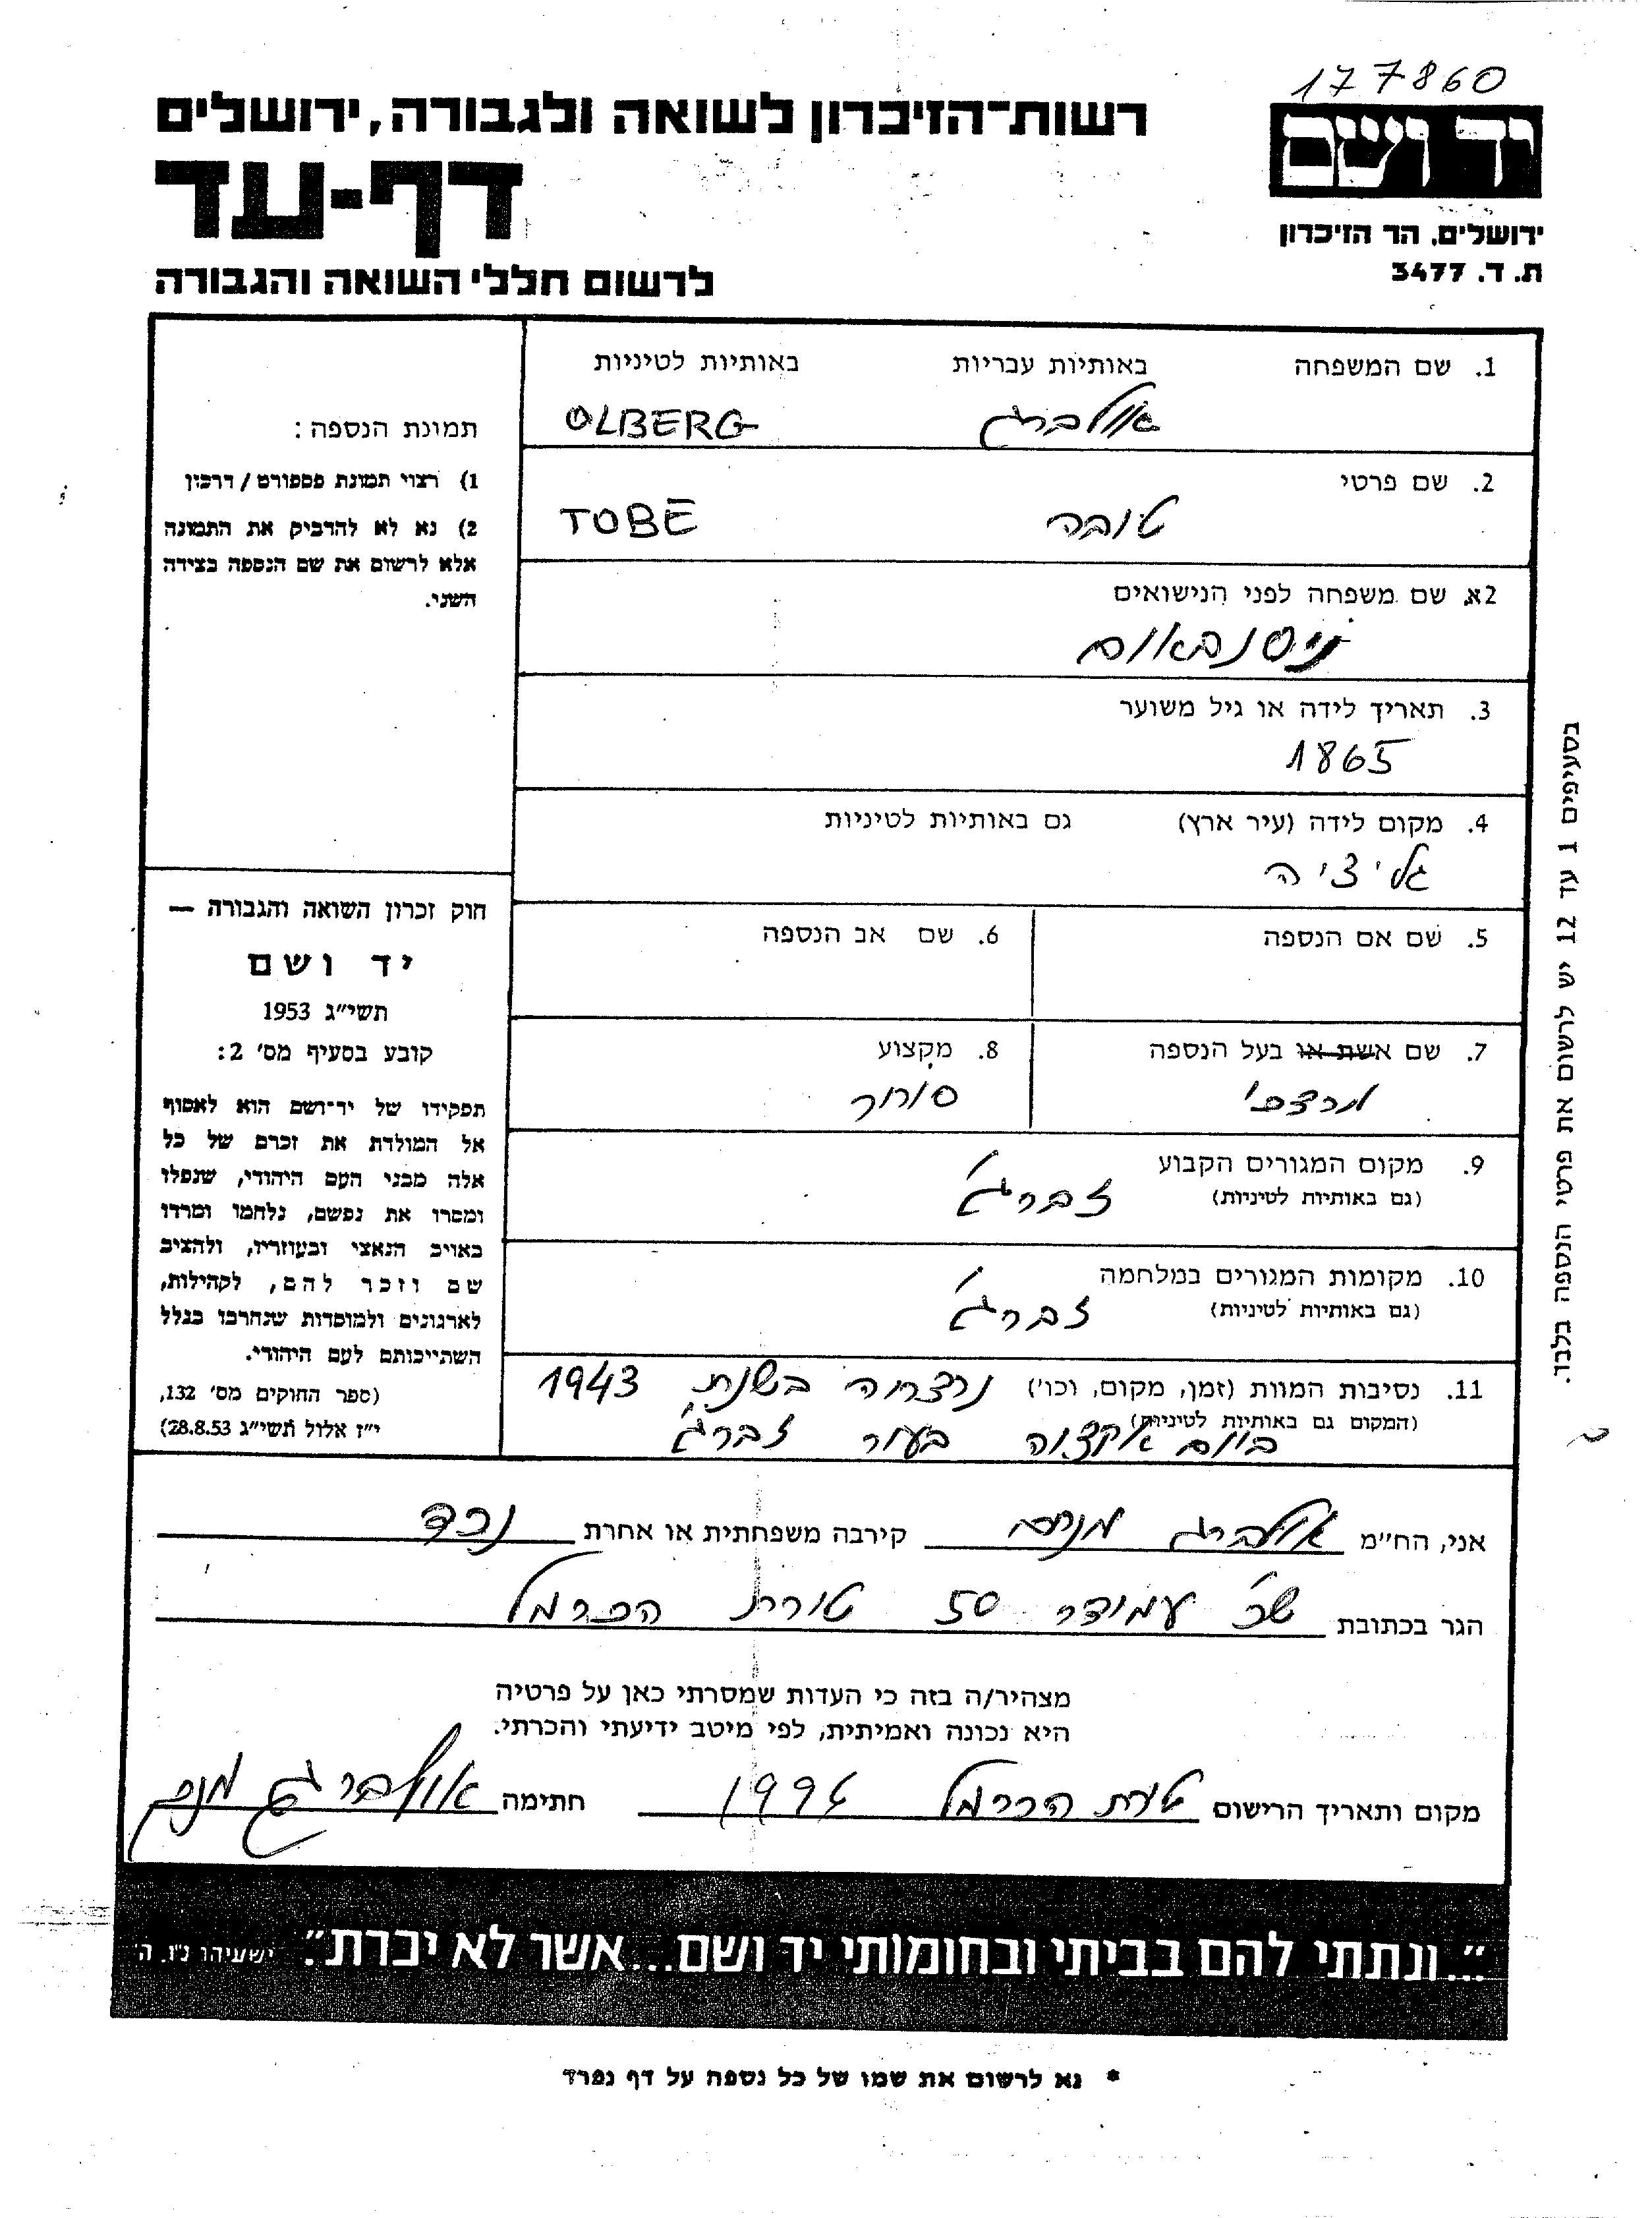 177860
יד ושם
ירושלים, הר הזיכרון
ת. ד. 3477
רשות־הזיכרון לשואה ולגבורה, ירושלים
דף-עד
לרשום חללי השואה והגבורה
1. שם המשפחה באותיות עבריות באותיות לטיניות
אולברג OLBERG
2. שם פרטי
טובה TOBE
2א. שם משפחה לפני הנישואים
ניסנבאום
3. תאריך לידה או גיל משוער
1865
4. מקום לידה (עיר ארץ) גם באותיות לטיניות
גליציה
5. שם אם הנספה 6. שם אב הנספה
7. שם אשת או בעל הנספה 8. מקצוע
מרדכי סוחר
9. מקום המגורים הקבוע
(גם באותיות לטיניות) זברג'
10. מקומות המגורים במלחמה
(גם באותיות לטיניות) זברג'
11. נסיבות המוות (זמן, מקום, וכו') נרצחה בשנת 1943
(המקום גם באותיות לטיניות)
ביום אקציה בעיר זברג'
תמונת הנספה:
1) רצוי תמונת פספורט / דרכון
2) נא לא להדביק את התמונה
אלא לרשום את שם הנספה בצידה
השני.
חוק זכרון השואה והגבורה —
יד ושם
תשי"ג 1953
קובע בסעיף מס' 2:
תפקידו של יד־ושם הוא לאסוף
אל המולדת את זכרם של כל
אלה מבני העם היהודי, שנפלו
ומסרו את נפשם, נלחמו ומרדו
באויב הנאצי ובעוזריו, ולהציב
שם וזכר להם, לקהילות,
לארגונים ולמוסדות שנחרבו בגלל
השתייכותם לעם היהודי.
(ספר החוקים מס' 132,
י"ז אלול תשי"ג 28.8.53)
בסעיפים 1 עד 12 יש לרשום את פרטי הנספה בלבד.
אני, הח"מ אולברג מנחם קירבה משפחתית או אחרת נכד
הגר בכתובת שכ' עמידר 50 טירת הכרמל
מצהיר/ה בזה כי העדות שמסרתי כאן על פרטיה
היא נכונה ואמיתית, לפי מיטב ידיעתי והכרתי.
מקום ותאריך הרישום טירת הכרמל חתימה אולברג מנחם
"...ונתתי להם בביתי ובחומותי יד ושם...אשר לא יכרת". ישעיהו נ"ו, ה'
* נא לרשום את שמו של כל נספה על דף נפרד